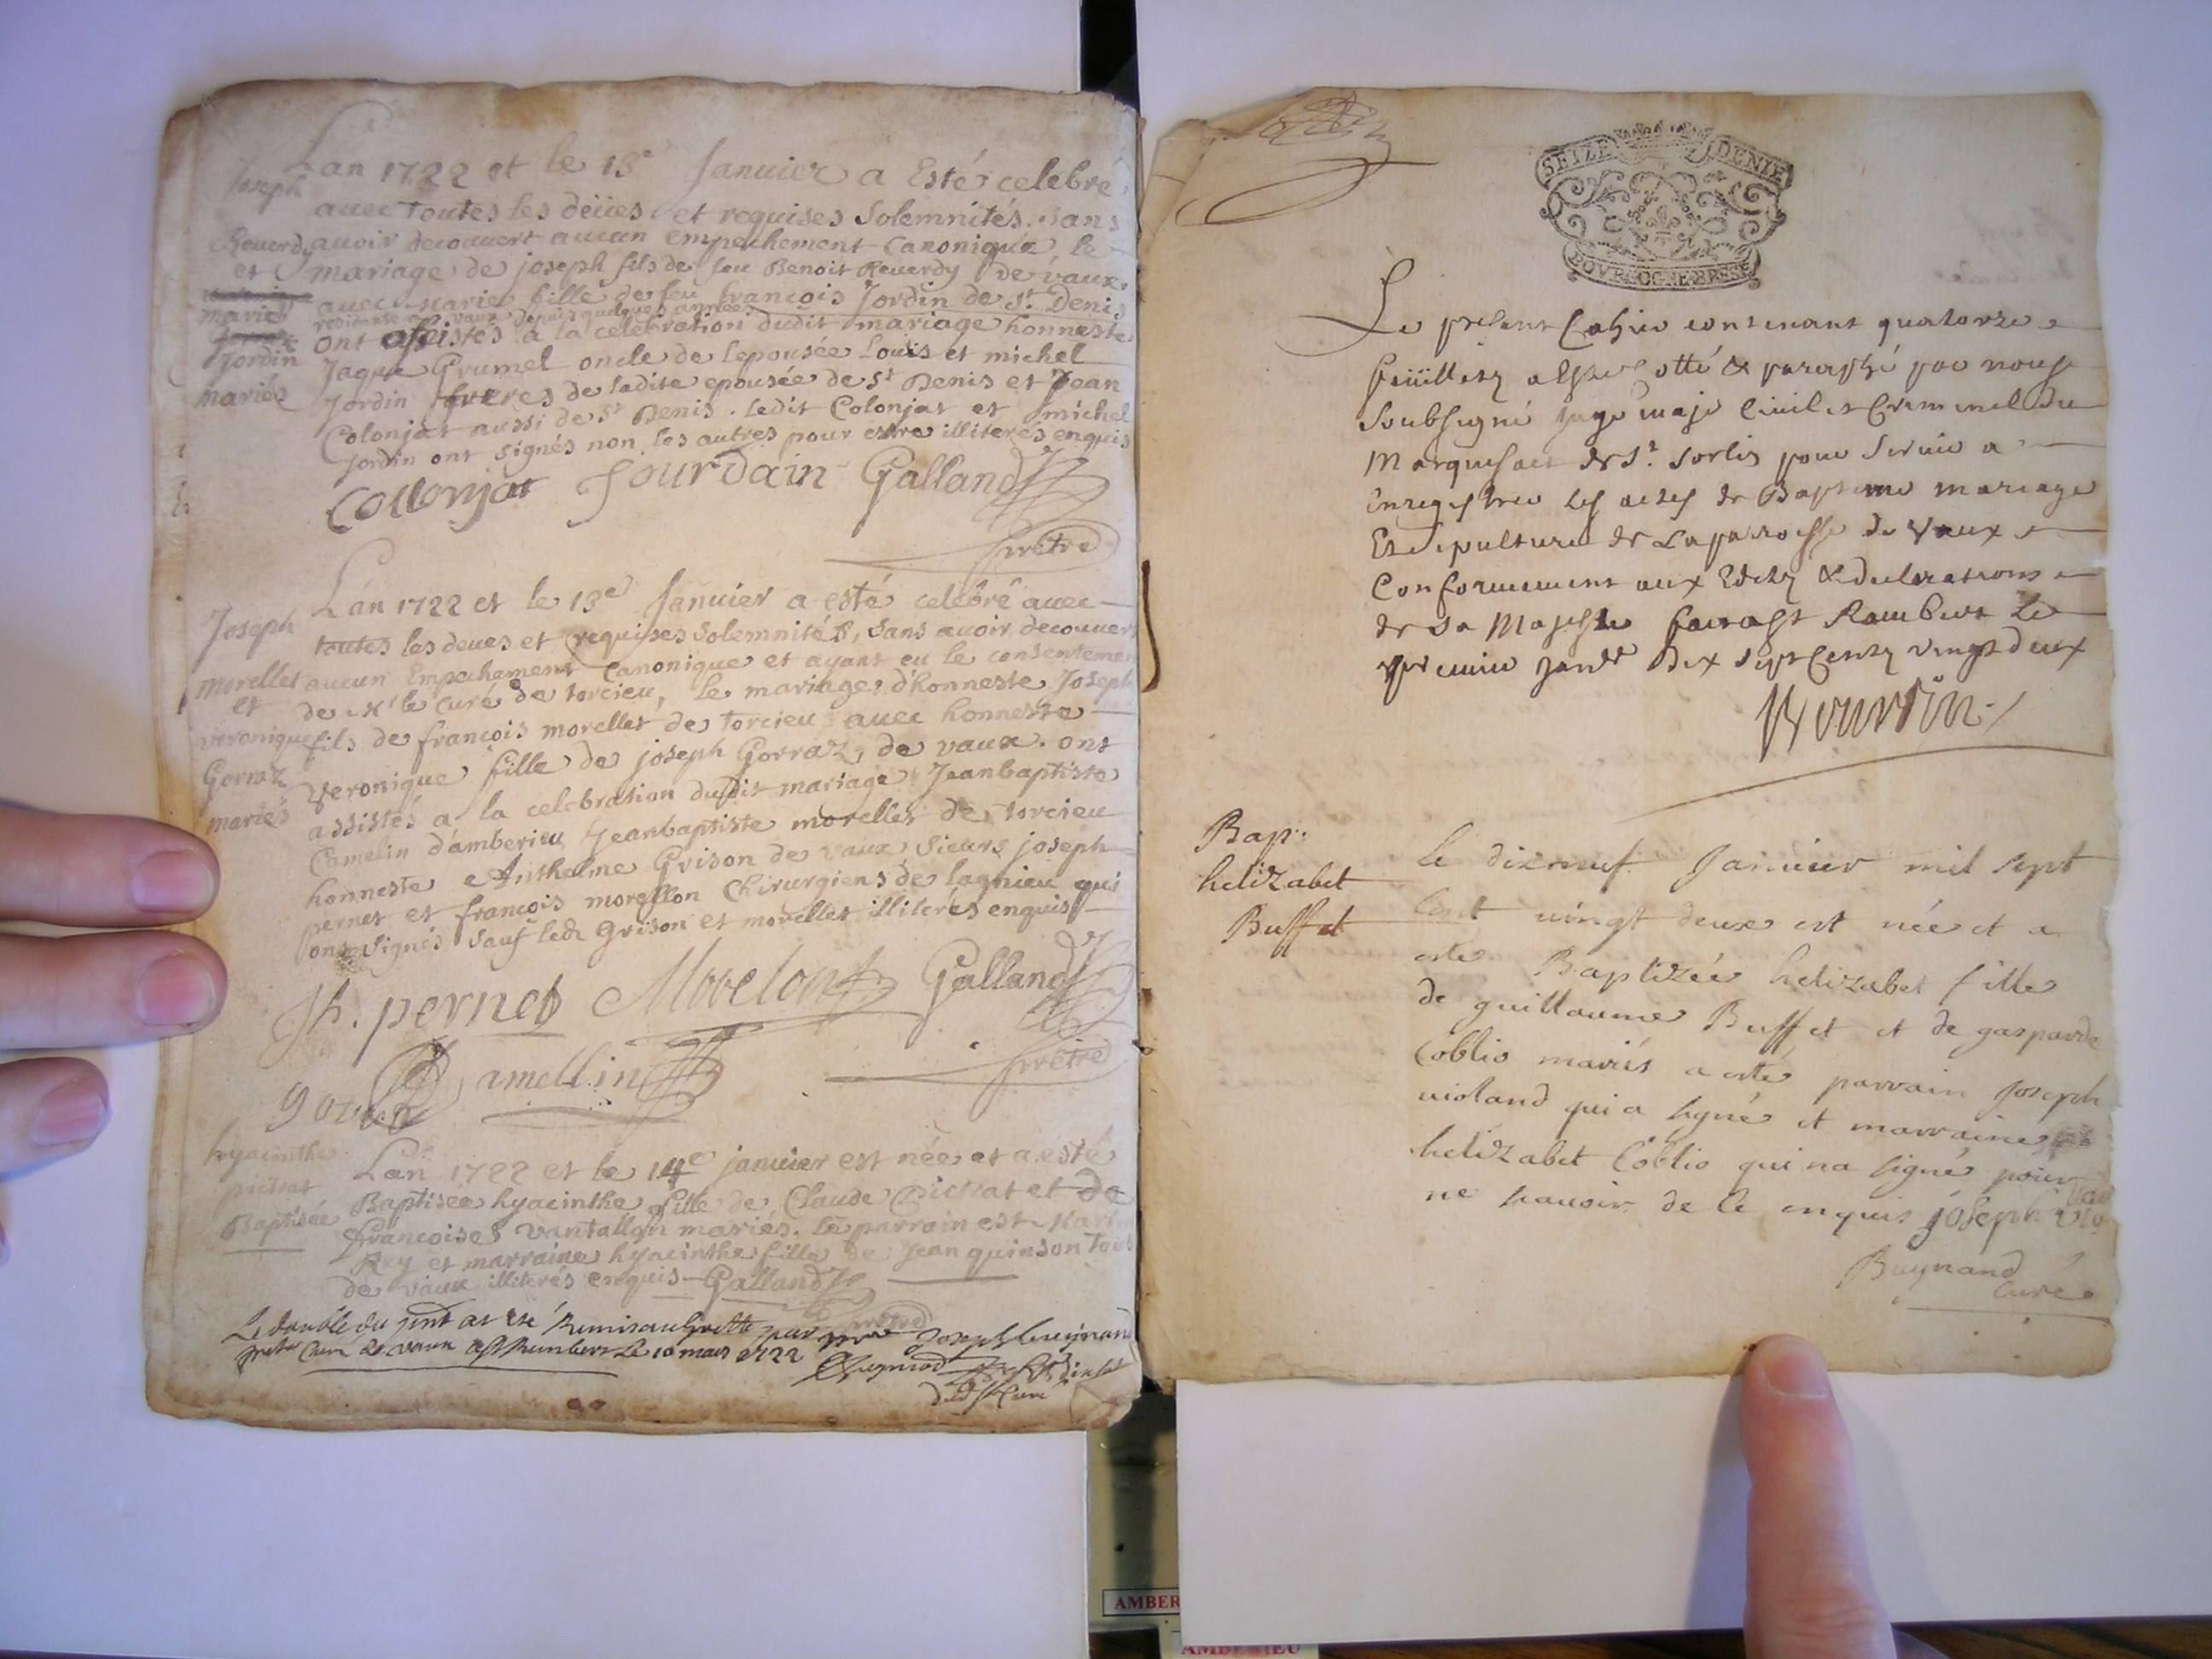 Lan 1722 et le 13e Januier a Esté celebré
auec toutes les deües et requises Solemnités. sans
auoir decouuert aucun empechement Canonique le
mariage de joseph fils de feu Benoit Reuerdy de vaux
auec Marie fille de feu françois Jordin de St. Denis
residante a vaux depuis quelques années
ont assistés a la celebration dudit mariage honneste
Jaque Grumel oncle de lepousée Louis et michel
Jordin freres de ladite epousée de St Denis et Jean
Colonjat aussi de St Denis. ledit Colonjat et michel
Jordin ont signés non les autres pour estre illiterés enquis
Joseph
Reuerdy
et
marie
Jordin
mariés
Collonjat Jourdain Galland
prêtre
Lan 1722 et le 13e Januier a esté celebré auec
toutes les deues et requises Solemnités, sans auoir decouuert
aucun Empechement Canonique et ayant eu le consentemen
de Mr le Curé de torcieu, le mariage d'honneste Joseph
fils de françois morellet de torcieu auec honneste
Veronique fille de joseph Gorraz, de vaux. ont
assistés a la celebration dudit mariage Jeanbaptiste
Camelin d'amberieu, Jeanbaptiste morellet de torcieu
honneste Anthelme Grison de vaux Sieurs joseph
pernet et françois morellon Chirurgiens de lagnieu qui
ont signés sauf led. Grison et morellet illiterés enquis
Joseph
morellet
et
veronique
Gorraz
mariés
Jh. pernet Morelon Galland
prêtre
Camellin
hyacinthe
pictrat
Baptisée
Lan 1722 et le 14e januier est née et a esté
Baptisée hyacinthe fille de Claude Pictrat et de
françoise Vantallon mariés. le parrain est
Rey et marraine hyacinthe fille de Jean quinson tous
de vaux illiterés enquis Galland
prêtre
Le double du pnt at ete Remis au Greffe par Joseph Buynand
pretre Curé de vaux a St Rambert le 10 mars 1722
dud Sr Curé
SEIZE DENIE
BOVRGOGNE BRESSE
Le present Cahier contenant quatorze
feüillets a esté Cotté & paraphé par nous
Soubsigné juge maje Ciuil et Criminel du
Marquisat de St. Sorlin pour Seruir a
Enregistrer les actes de Baptesme mariage
Et Sepulture de La parroisse de Vaux
Conformement aux Edits & declarations
de Sa Majesté fait a St Rambert Le
premier janvr dix Sept Cents vingt deux
Bap:
helizabet
Buffet
le dixneuf Januier mil sept
Cent uingt deux est née et a
este Baptizée helizabet fille
de guillaume Buffet et de gasparde
Coblio mariés a esté parrain Joseph
uioland qui a signé et marraine
helizabet Coblio qui na signé pour
ne scauoir de ce enquis joseph vio
Buynand
Curé
AMBER
AMBERIEU